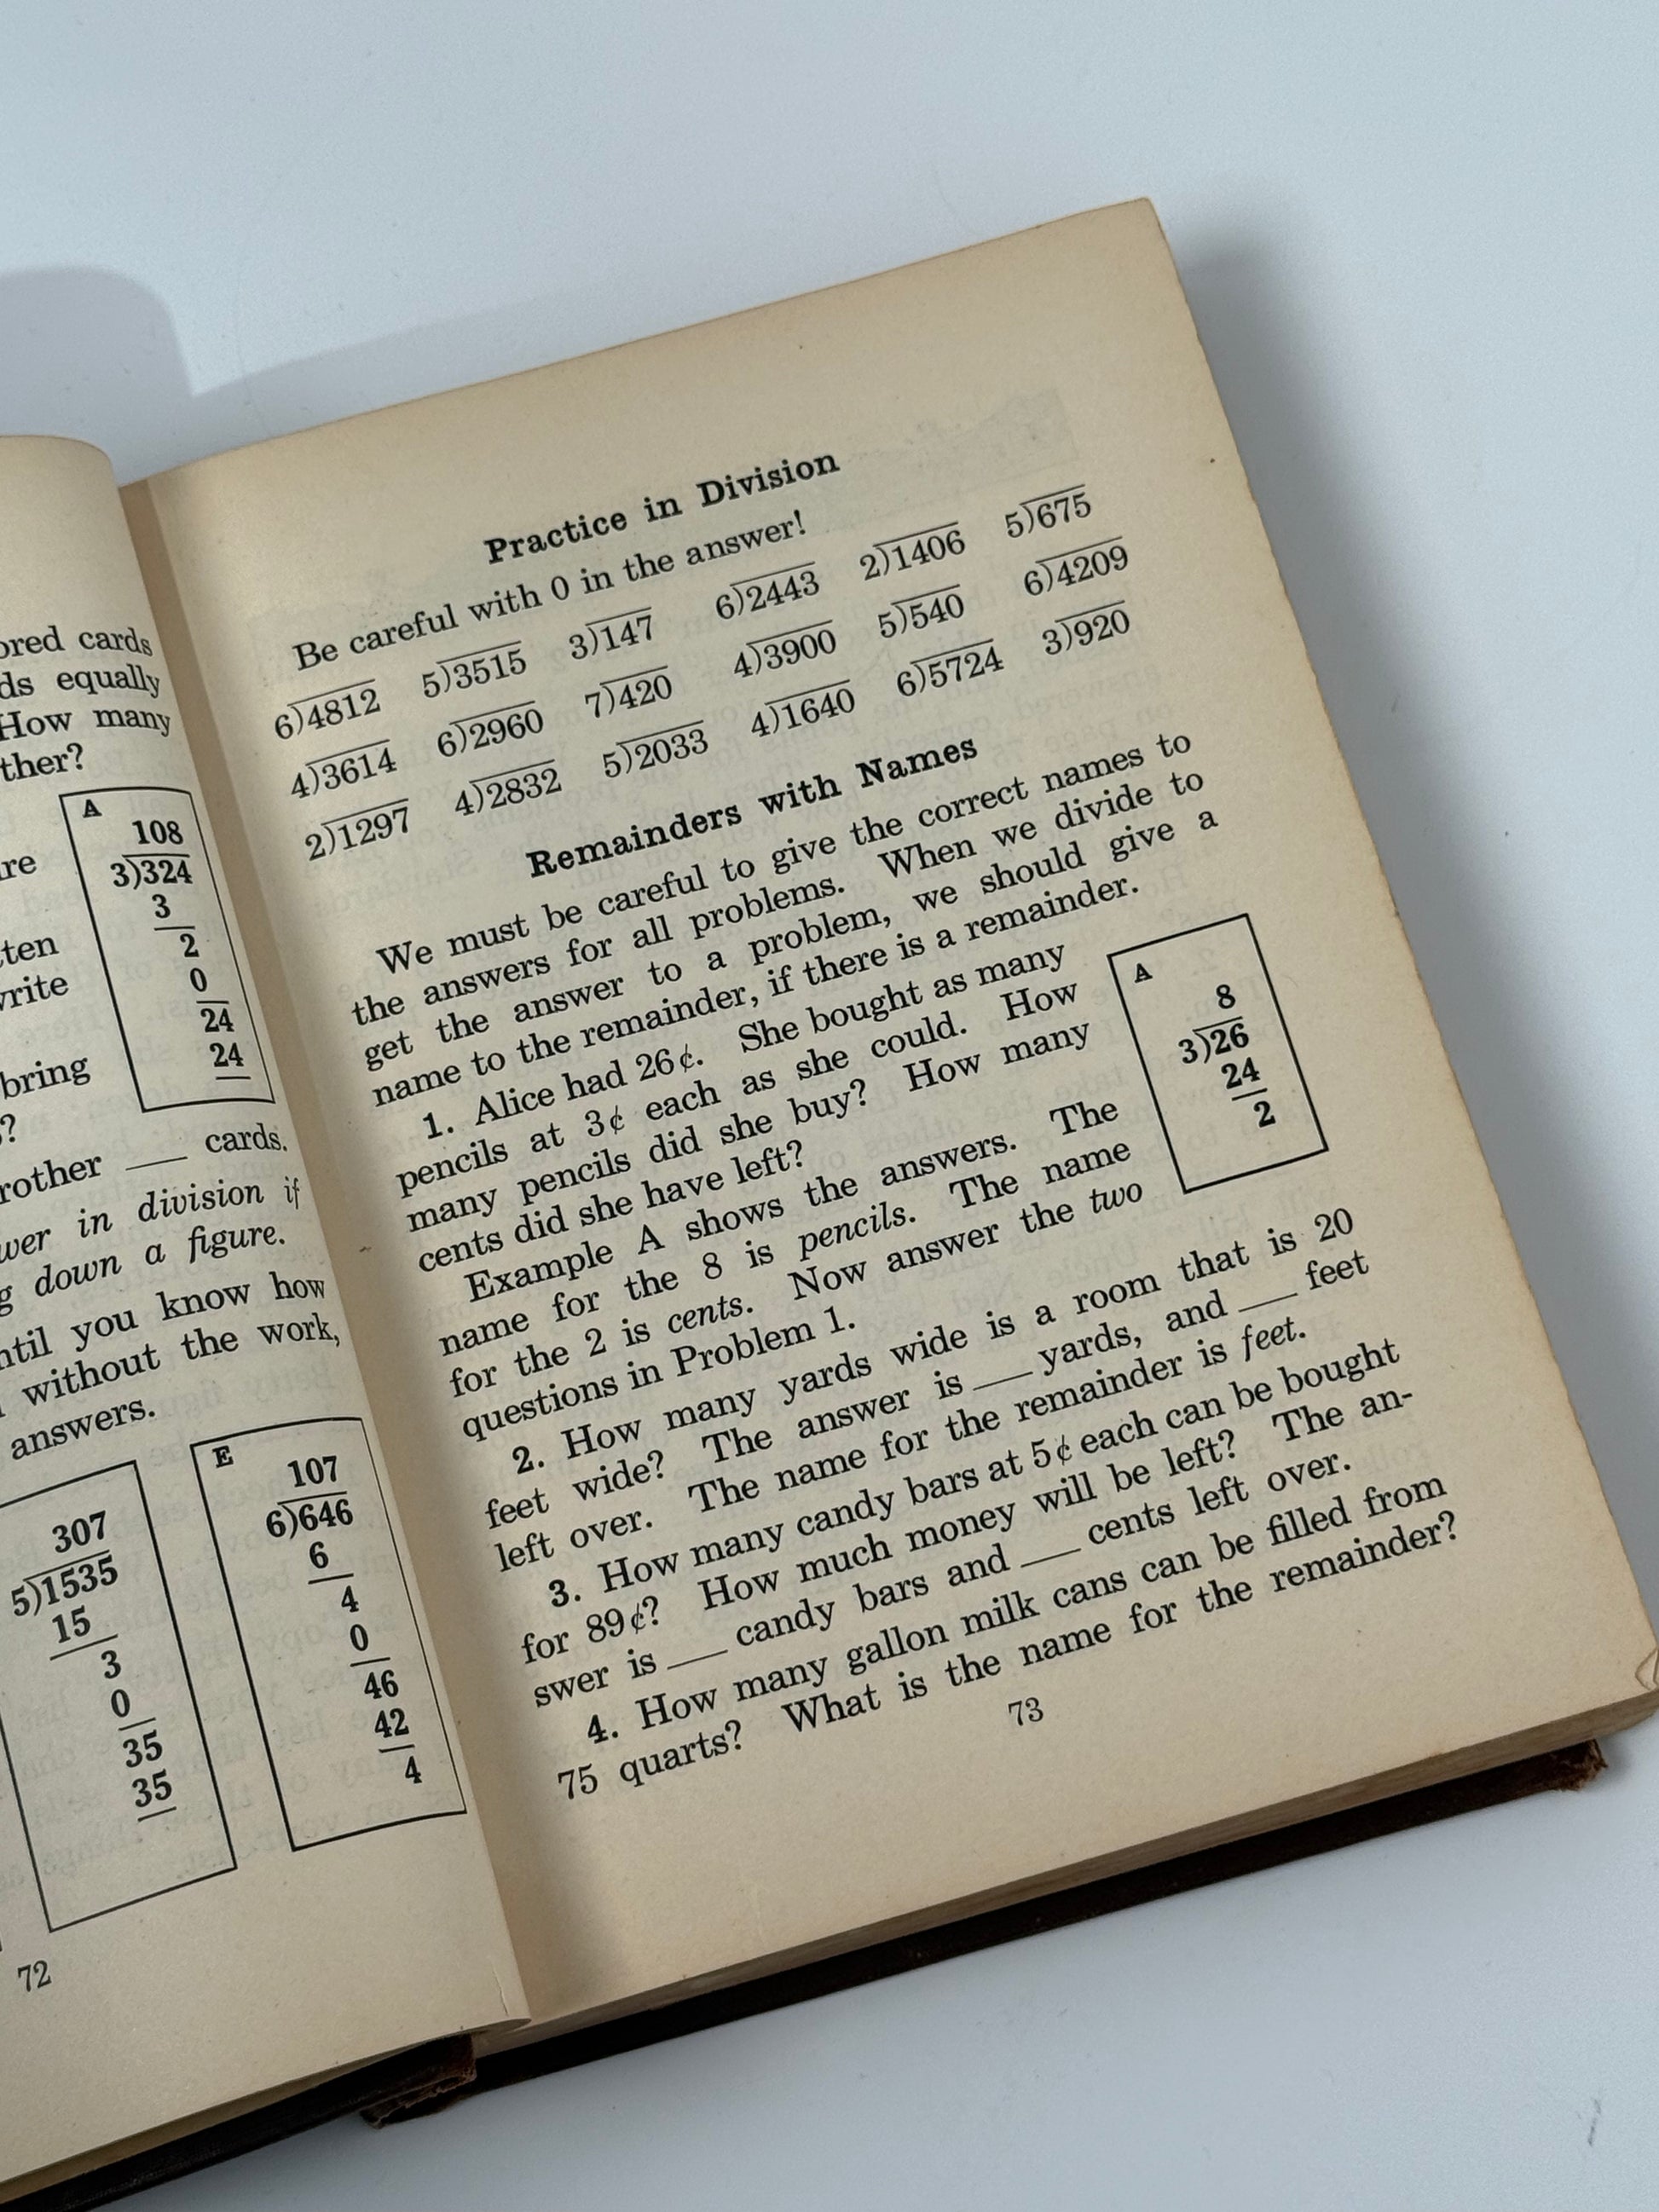 ored cards
ds equally
How many
ther?
re
ten
write
bring
?
rother ___ cards.
wer in division if
g down a figure.
ntil you know how
without the work,
answers.
A
108
3)324
3
2
0
24
24
307
5)1535
15
3
0
35
35
E
107
6)646
6
4
0
46
42
4
72
Practice in Division
Be careful with 0 in the answer!
6)4812 5)3515 3)147 6)2443 2)1406 5)675
4)3614 6)2960 7)420 4)3900 5)540 6)4209
2)1297 4)2832 5)2033 4)1640 6)5724 3)920
Remainders with Names
We must be careful to give the correct names to
the answers for all problems. When we divide to
get the answer to a problem, we should give a
name to the remainder, if there is a remainder.
1. Alice had 26¢. She bought as many
pencils at 3¢ each as she could. How
many pencils did she buy? How many
cents did she have left?
Example A shows the answers. The
name for the 8 is pencils. The name
for the 2 is cents. Now answer the two
questions in Problem 1.
A
8
3)26
24
2
2. How many yards wide is a room that is 20
feet wide? The answer is ___ yards, and ___ feet
left over. The name for the remainder is feet.
3. How many candy bars at 5¢ each can be bought
for 89¢? How much money will be left? The an-
swer is ___ candy bars and ___ cents left over.
4. How many gallon milk cans can be filled from
75 quarts? What is the name for the remainder?
73